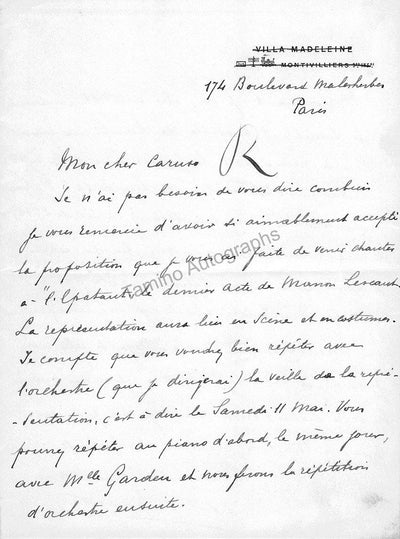 VILLA MADELEINE
MONTIVILLIERS
174 Boulevard Malesherbes
Paris
Mon cher Caruso
R
Je n'ai pas besoin de vous dire combien
je vous remercie d'avoir si aimablement accepté
la proposition que je vous ai faite de venir chanter
à "l'Épatant" le dernier acte de Manon Lescaut.
La représentation aura lieu en scène et en costumes.
Je compte que vous voudrez bien répéter avec
l'orchestre (que je dirigerai) la veille de la repré-
sentation, c'est à dire le Samedi 11 Mai. Vous
pourrez répéter au piano d'abord, le même jour,
avec Mlle Garden et nous ferons la répétition
d'orchestre ensuite.
Tamino Autographs